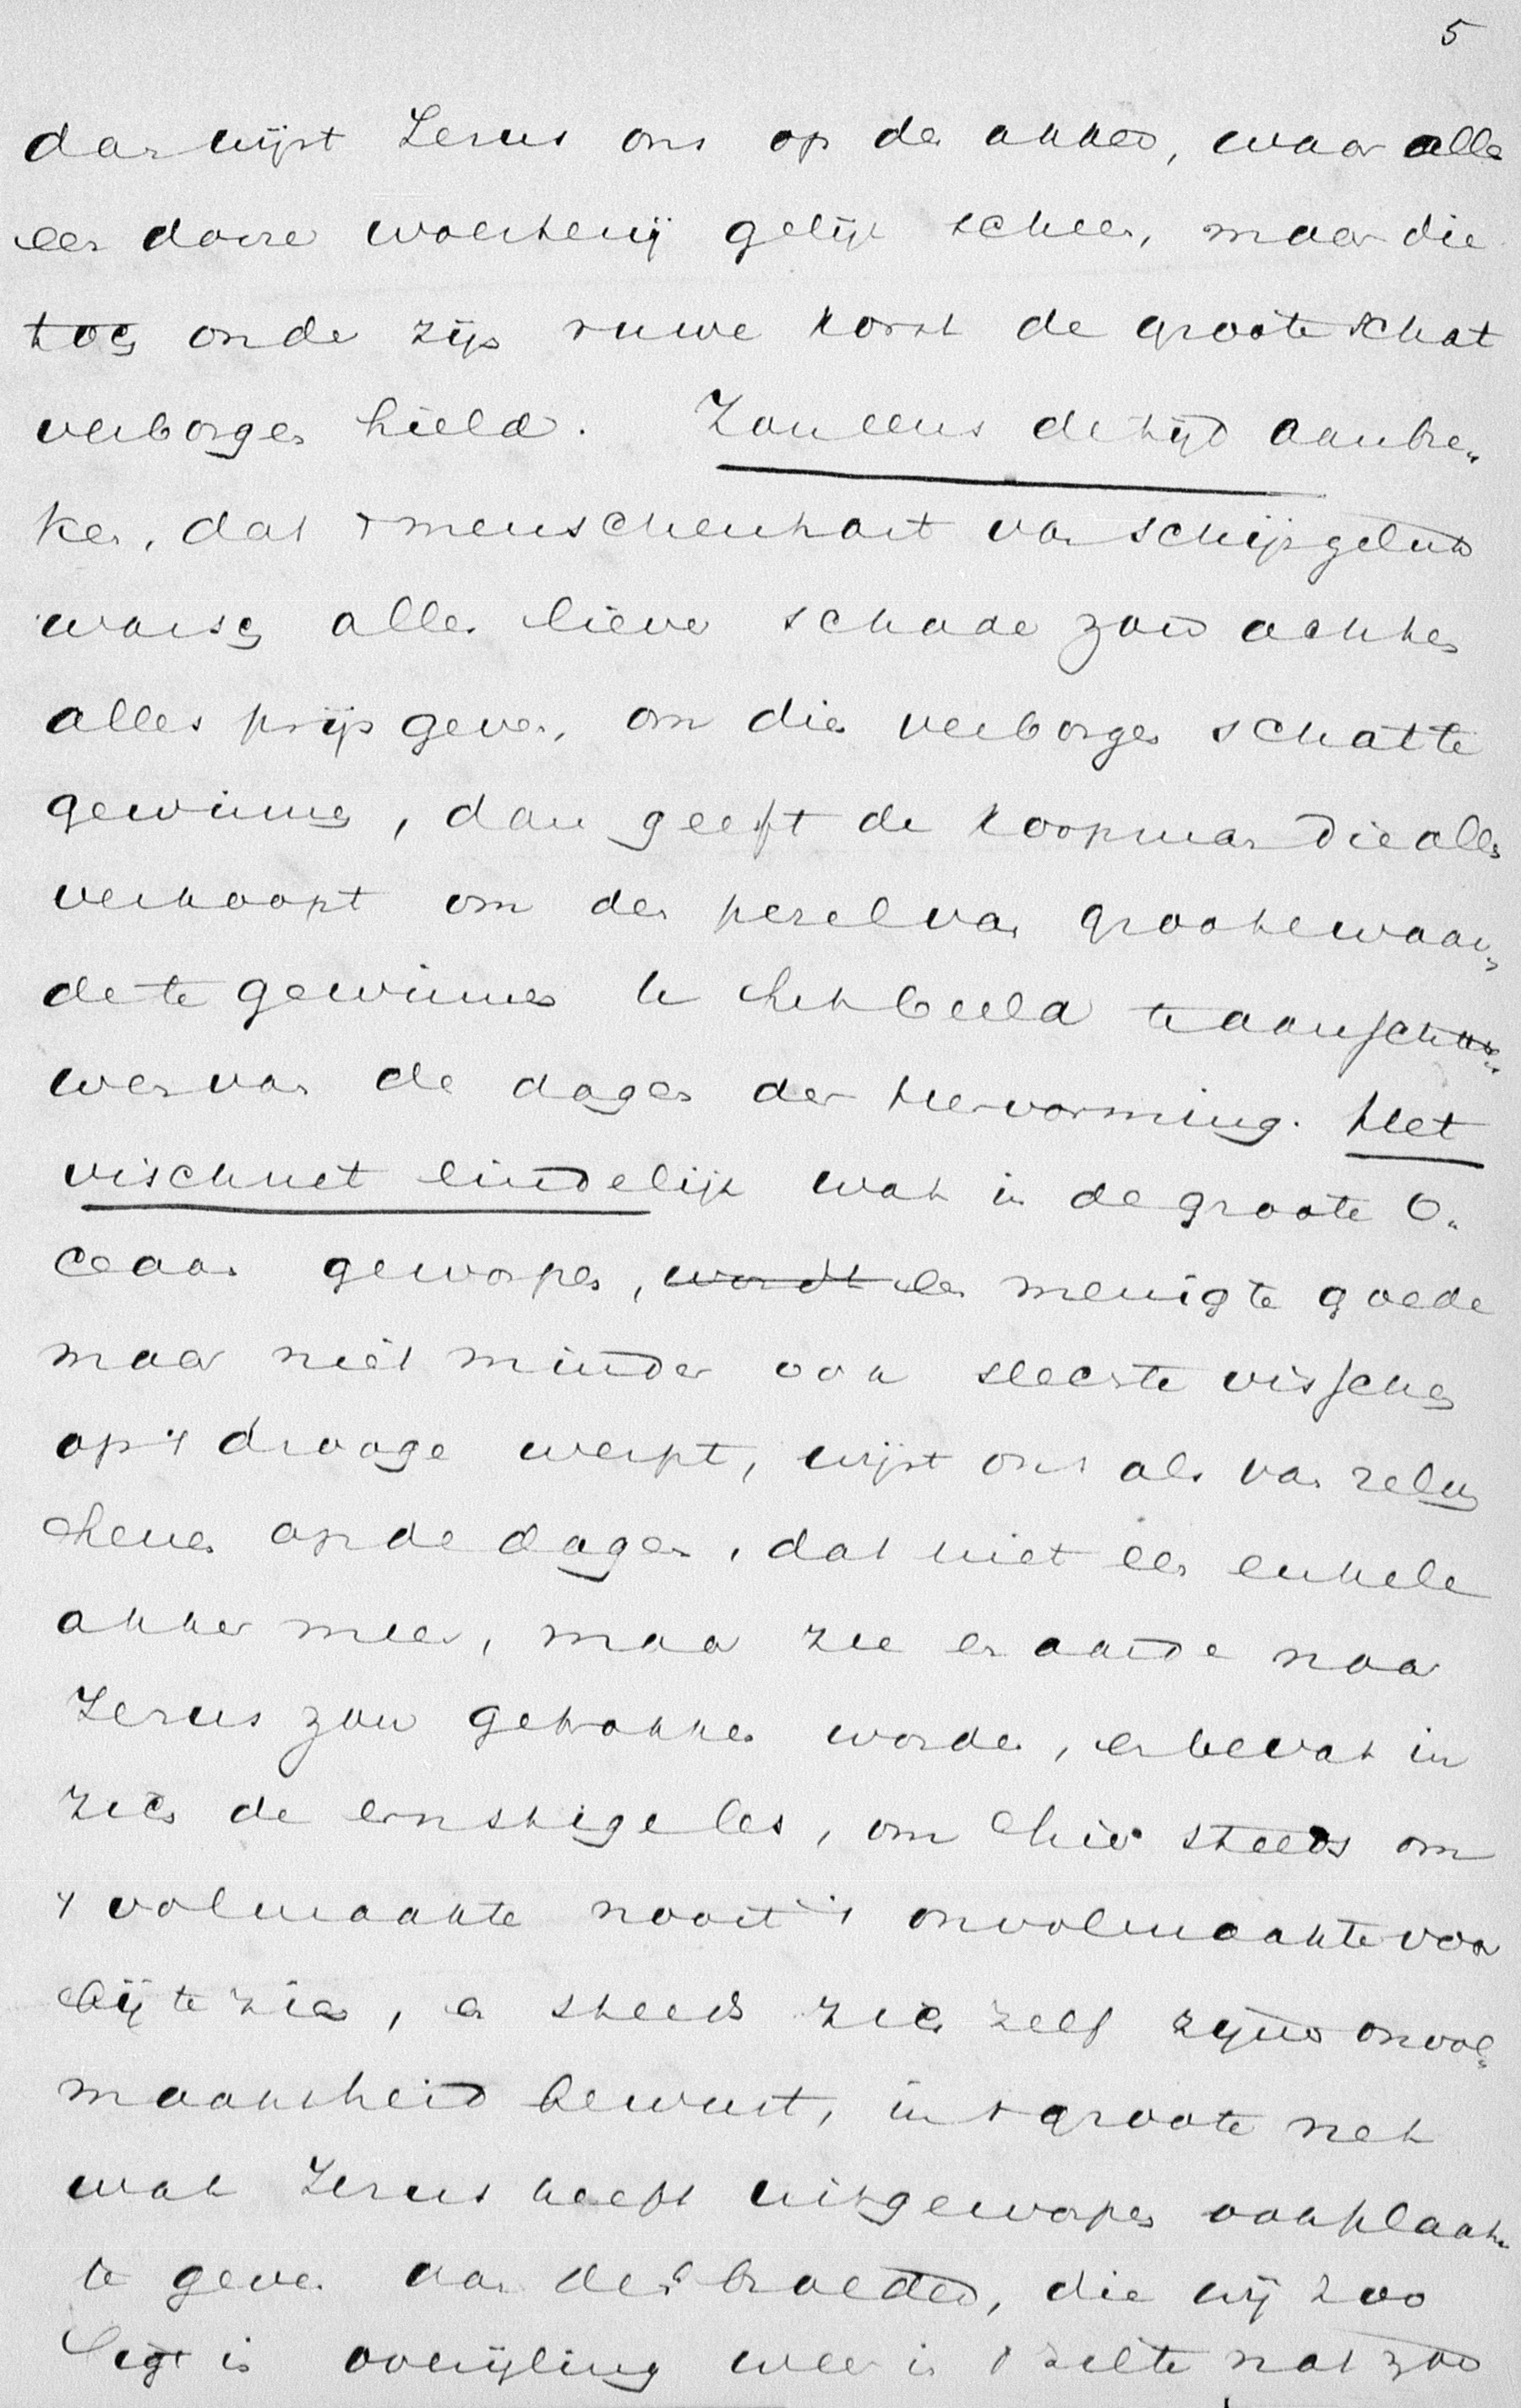 5
dan wijst Jesus ons op den akker, waar alles
een dorre woestenij gelijk scheen, maar die
toch onder zijn ruwe korst de groote schat
verborgen hield. Zou eens de tijd aanbre„
ken, dat 't menschenhart van schijngeluk
walsch alles liever schade zou achten
alles prijs geven, om die verborgen schat te
gewinnen, dan geeft de koopman die alles
verkoopt om den perel van groote waar„
de te gewinnen te het beeld te aanschou„
wen van de dagen der hervorming. Het
vischnet eindelijk wat in de groote O„
ceaan geworpen, wordt een menigte goede
maar niet minder ook slechte visschen
op 't drooge werpt, wijst ons als van zelven
henen op de dagen, dat niet een enkele
akker meer, maar zee en aarde naar
Jesus zou getrokken worden, en bevat in
zich de ernstige les, om hier steeds om
't volmaakte nooit 't onvolmaakte voor
bij te zien, en steeds zich zelf zijner onvol„
maaktheid bewust, in 't groote net
wat Jesus heeft uitgeworpen ook plaats
te geven aan den broeder, die wij zoo
ligt in overijling weer in 't zilte nat zoo